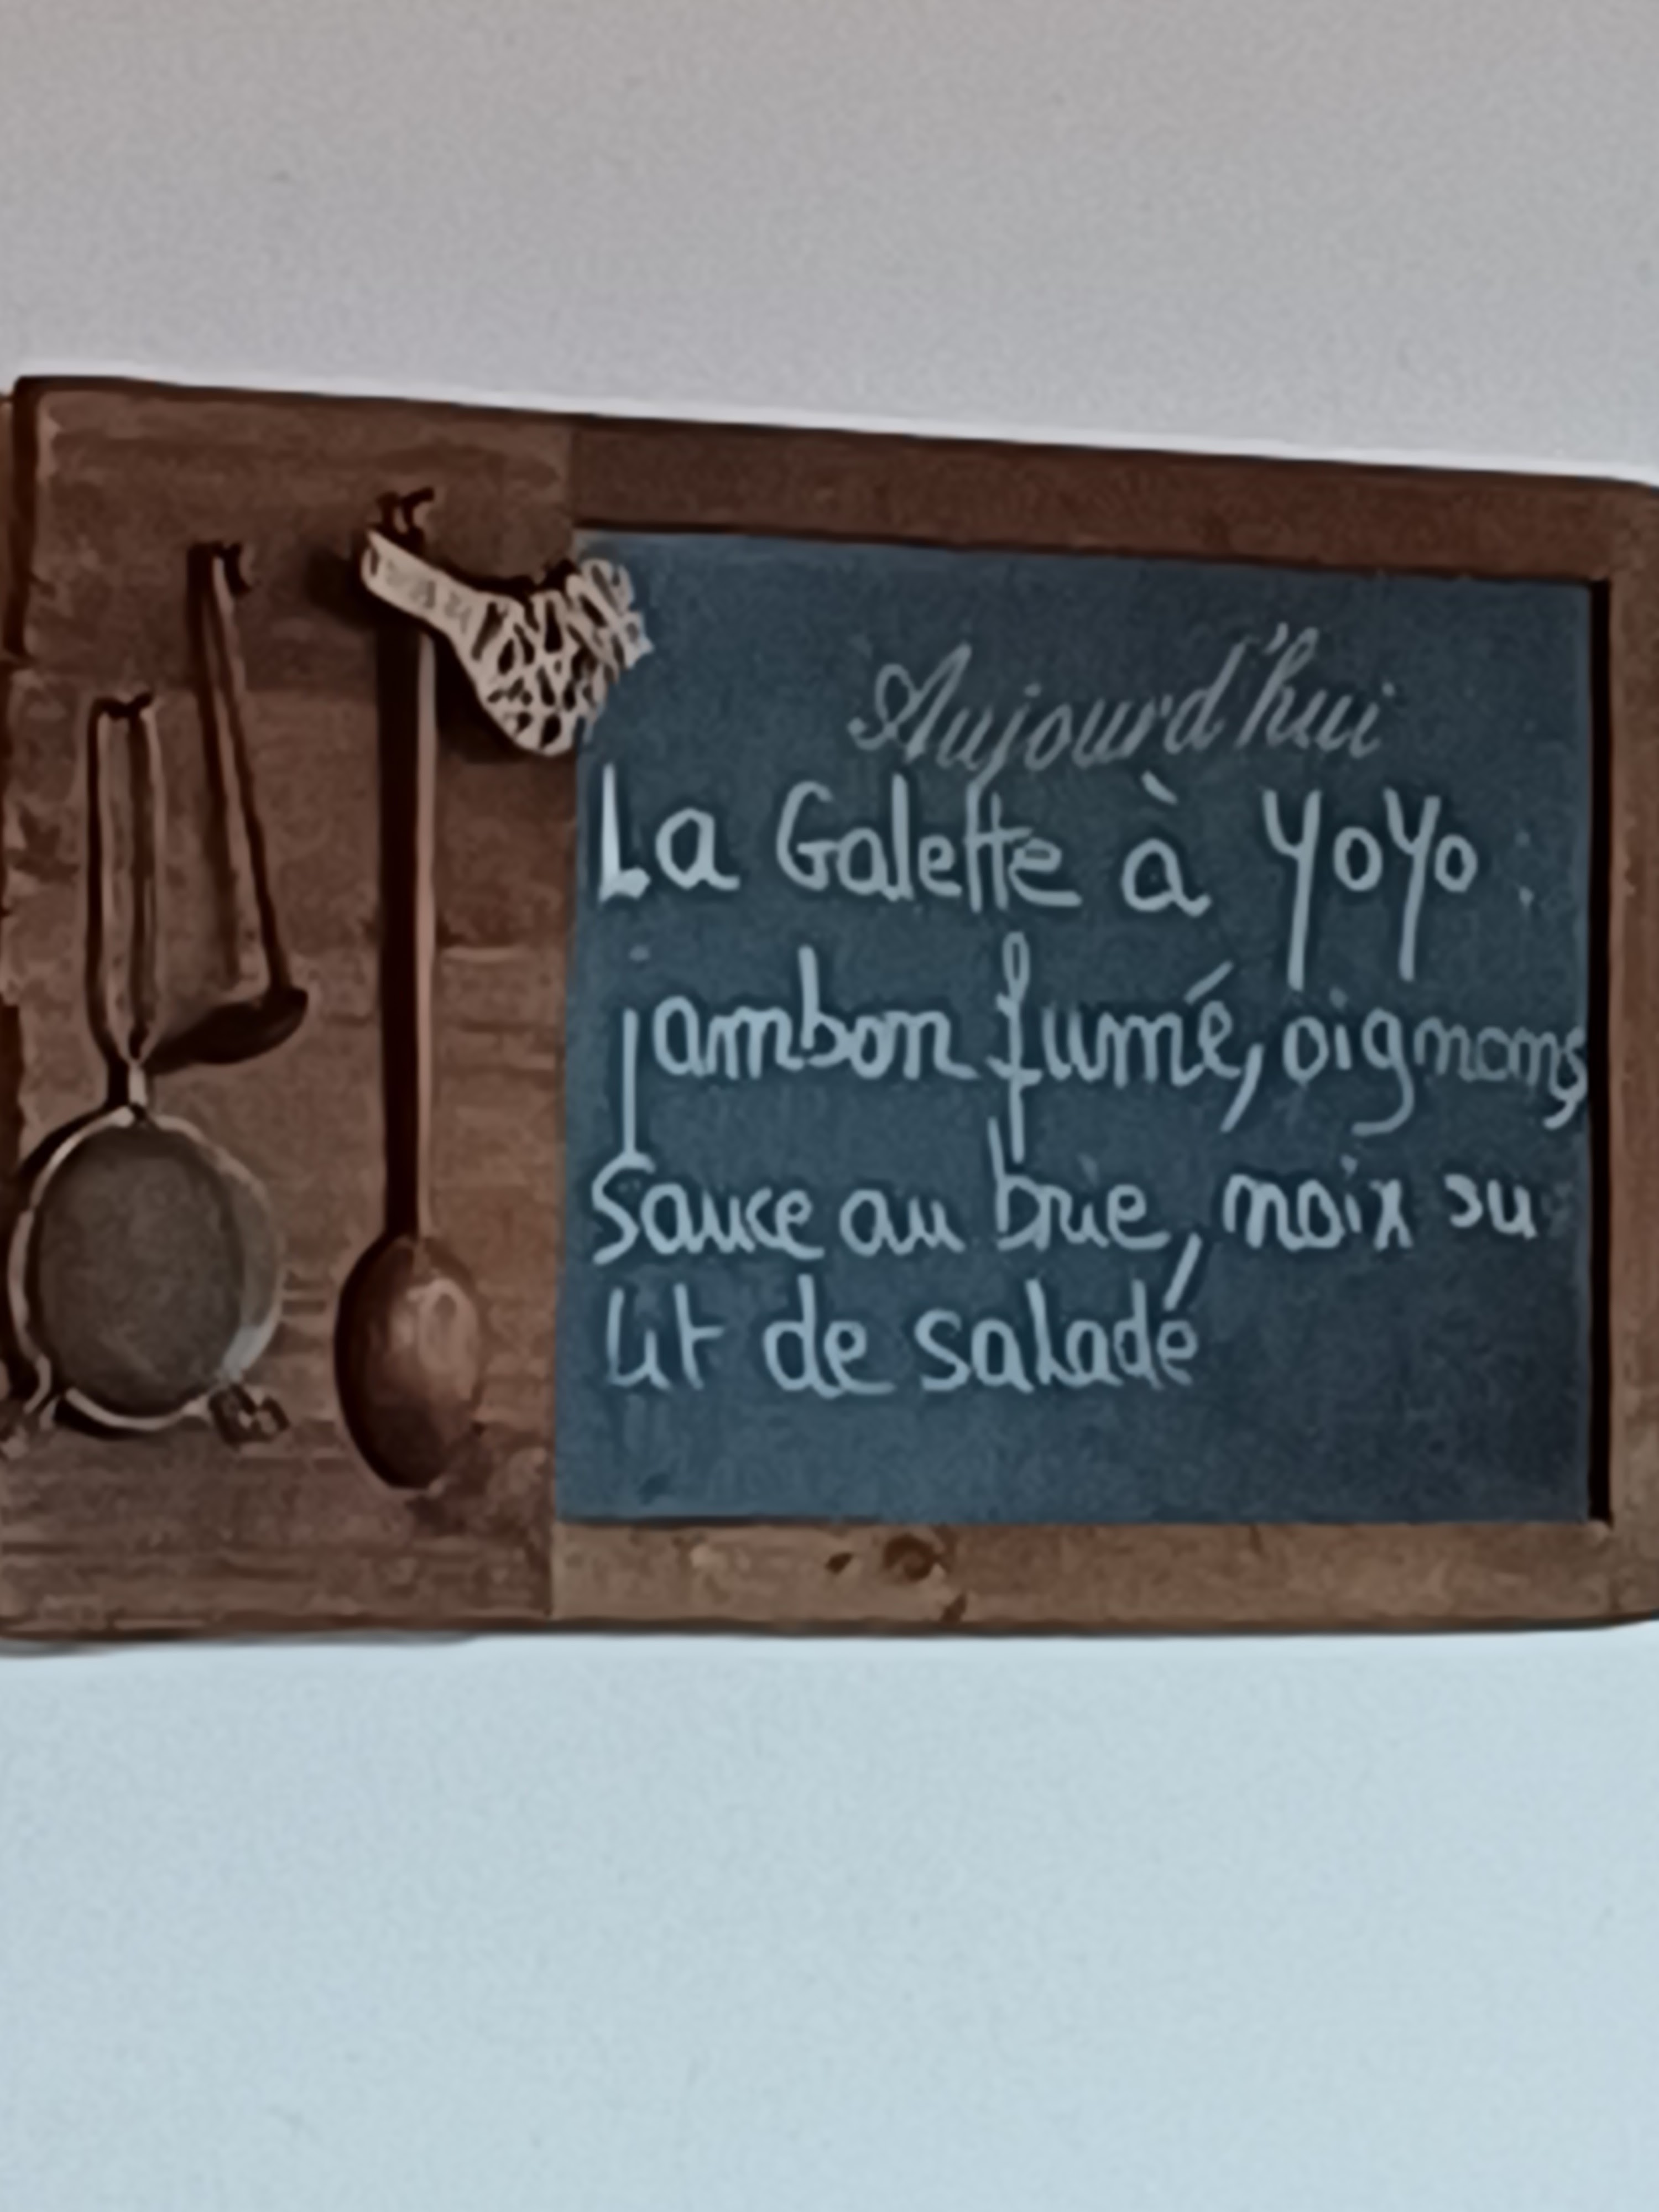 Aujourd'hui
La Galette à YoYo.
jambon fumé, oignons,
Sauce au brie, noix su
lit de salade